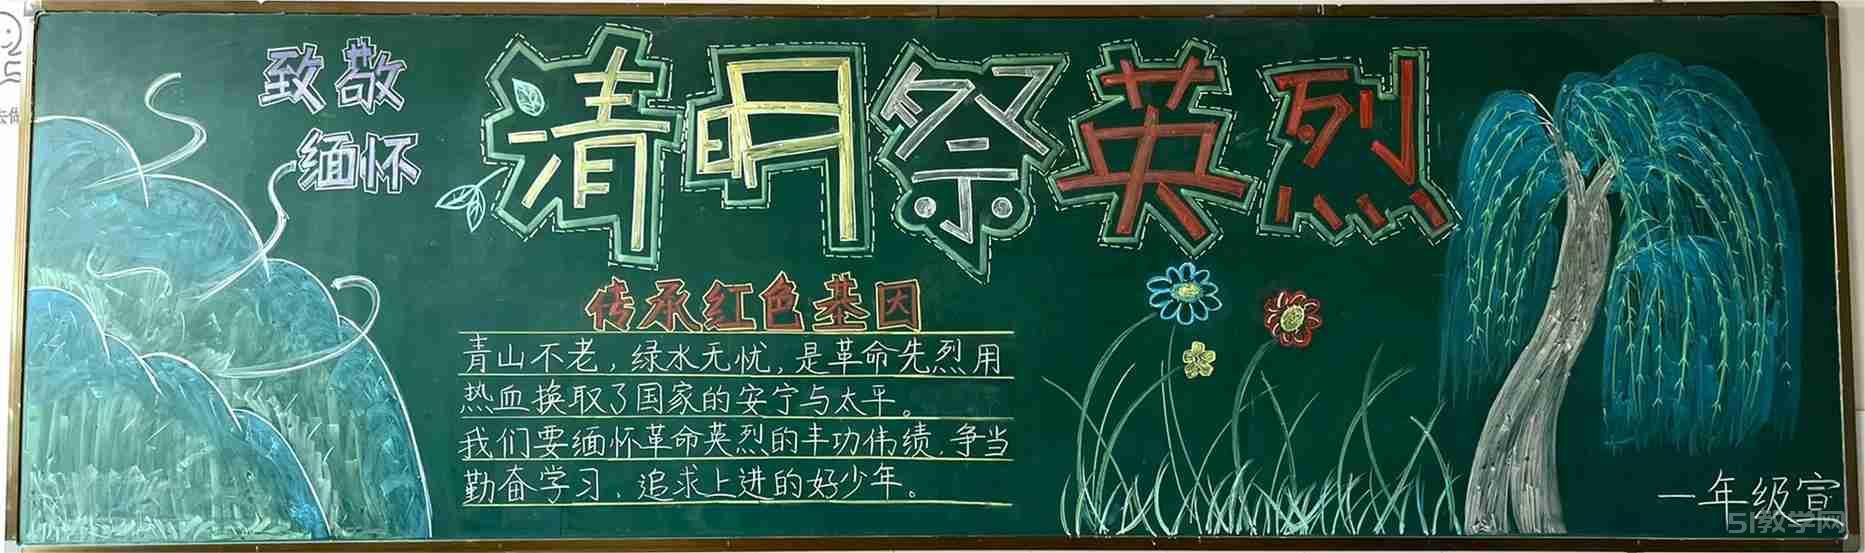 致敬
缅怀
清明祭英烈
传承红色基因
青山不老，绿水无忧，是革命先烈用
热血换取了国家的安宁与太平。
我们要缅怀革命英烈的丰功伟绩，争当
勤奋学习、追求上进的好少年。
一年级宣
51教学网
去做